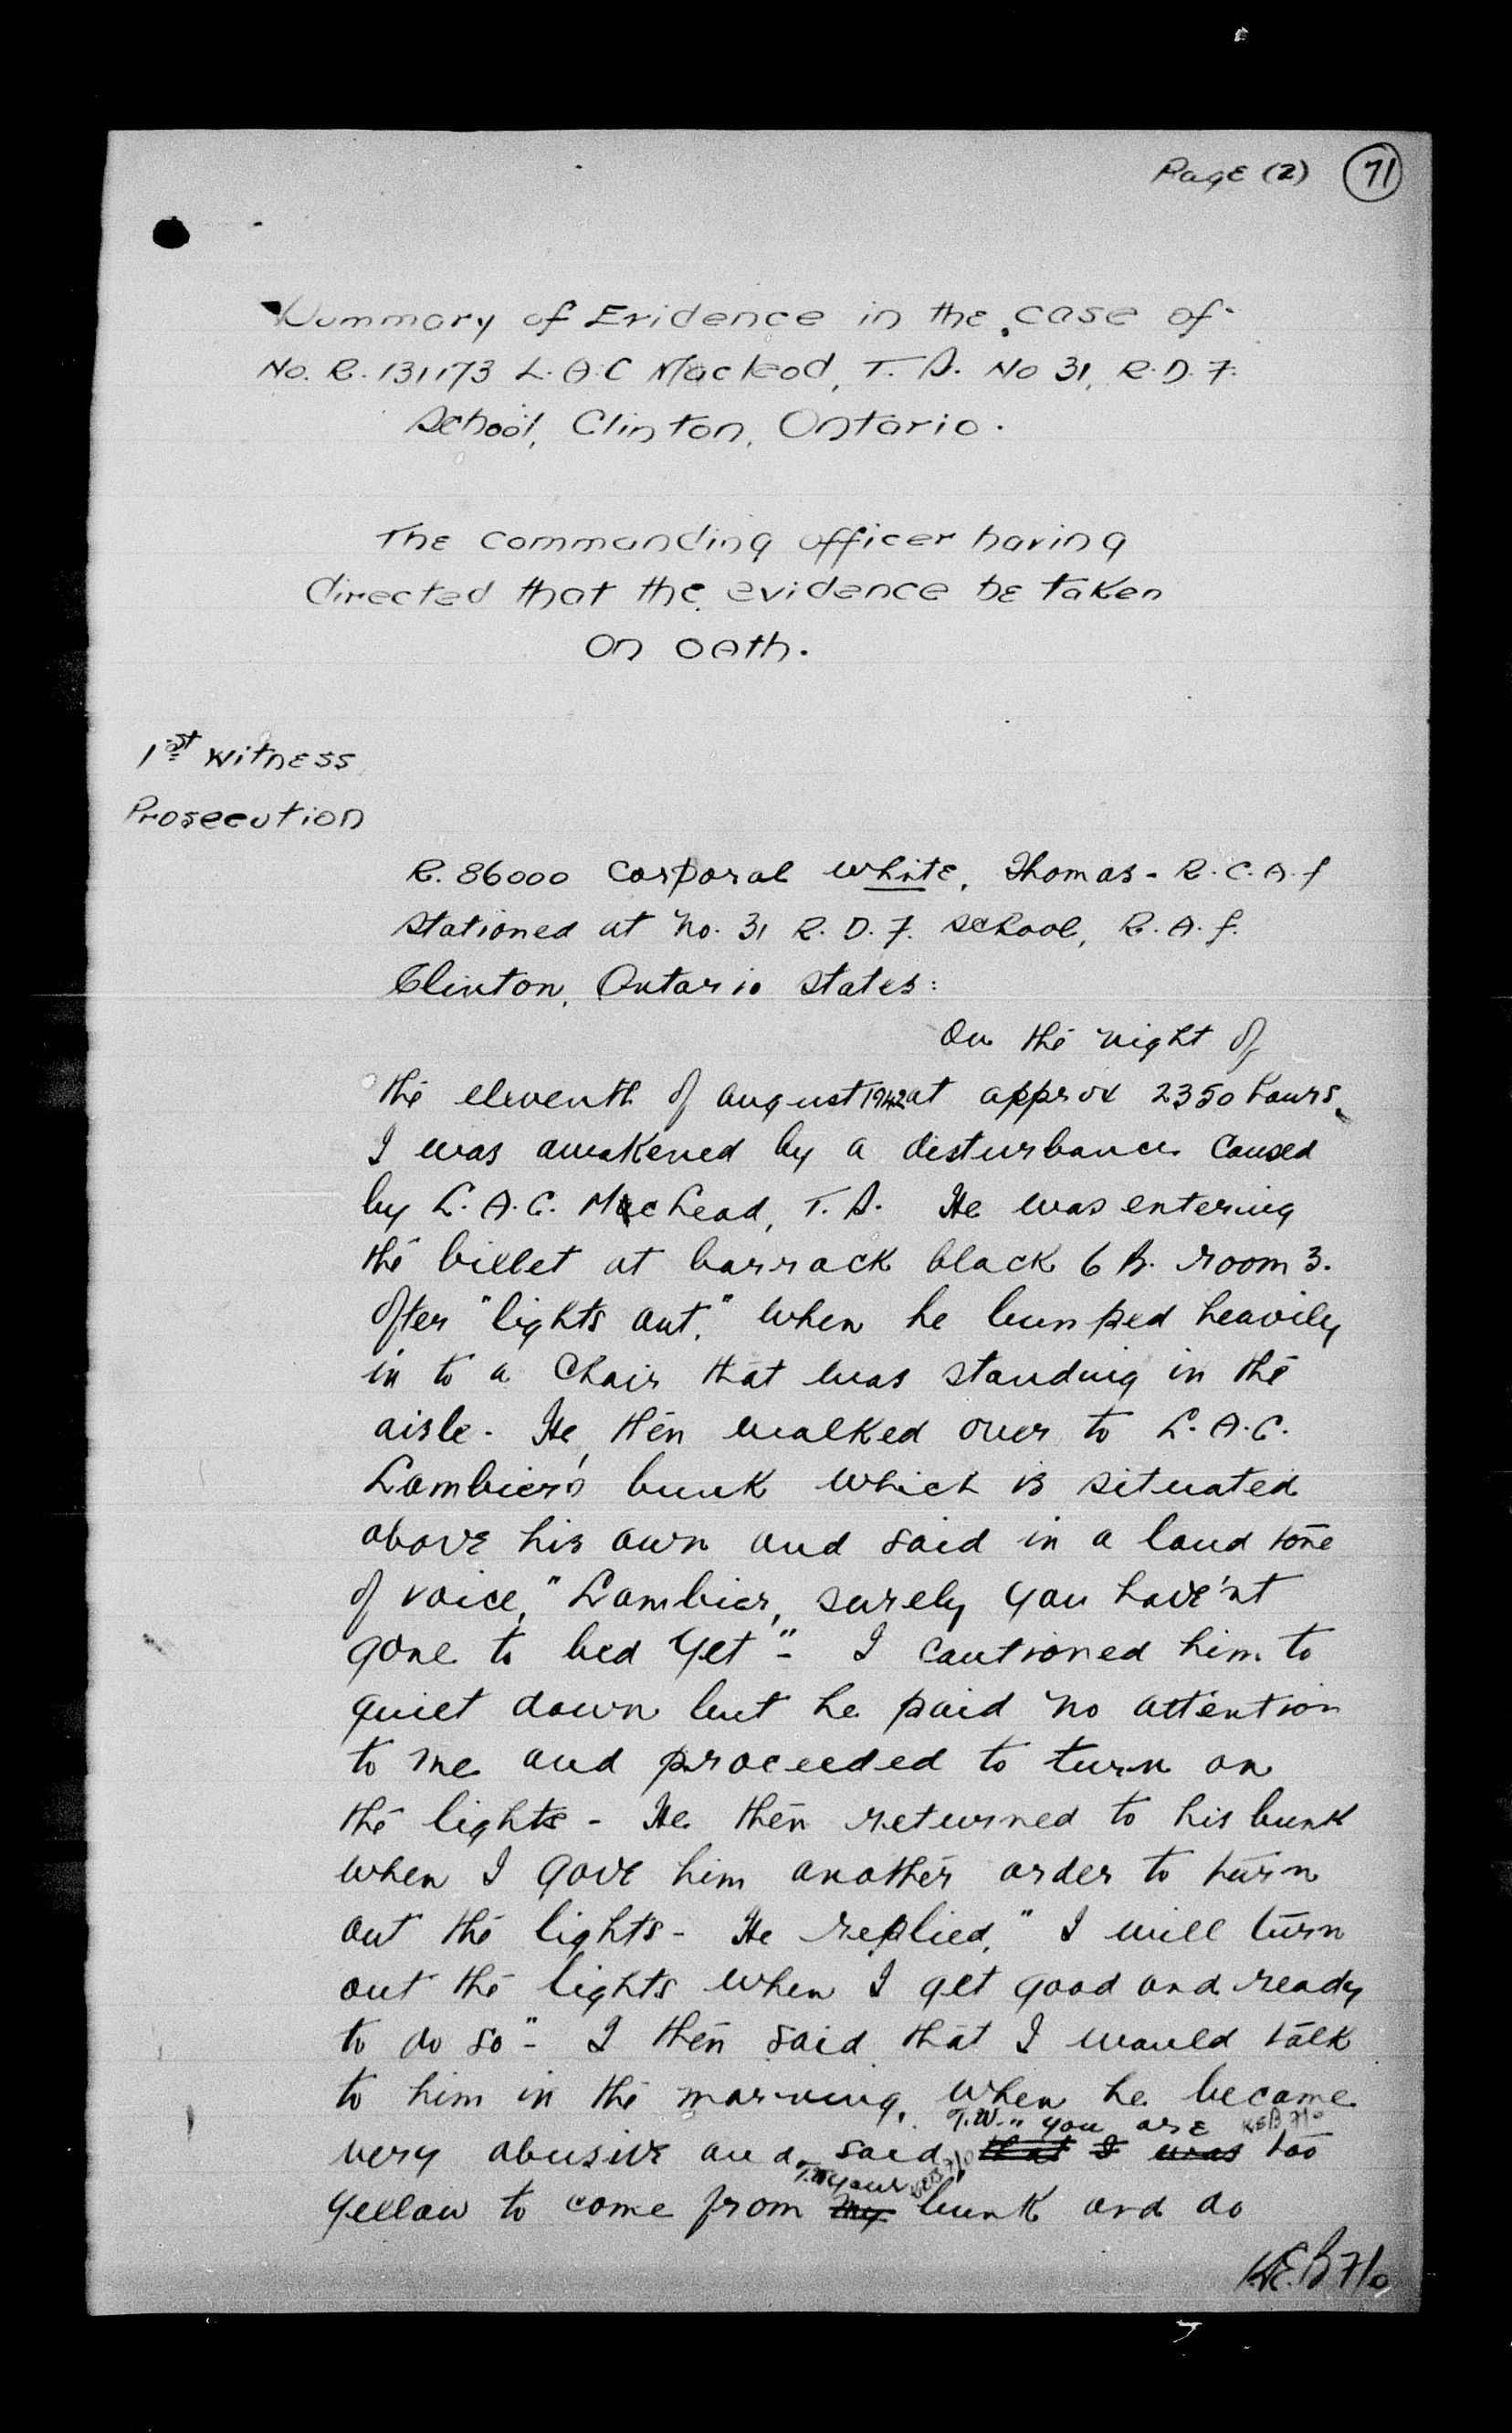 Page (2) 71
Summary of Evidence in the case of
No. R. 131173 L.A.C Macleod, T. S. No 31, R.D.F.
School, Clinton, Ontario.
The commanding officer having
directed that the evidence be taken
on oath.
1st Witness
Prosecution
R. 86000 Corporal White, Thomas - R.C.A.F
stationed at No. 31 R.D.F. School, R.A.F.
Clinton, Ontario states:
On the night of
the eleventh of August 1942 at approx 2350 hours,
I was awakened by a disturbance caused
by L.A.C. MacLeod, T. S. He was entering
the billet at barrack block 6 B. room 3.
after "lights out," when he bumped heavily
in to a chair that was standing in the
aisle - He then walked over to L.A.C.
Lambier's bunk which is situated
above his own and said in a loud tone
of voice, "Lambier, surely you have'nt
gone to bed yet" - I cautioned him to
quiet down but he paid no attention
to me and proceeded to turn on
the lights - He then returned to his bunk
when I gave him another order to turn
out the lights - He replied, "I will turn
out the lights when I get good and ready
to do so" - I then said that I would talk
to him in the morning, when he became
T.W. " you are KEB F/O
very abusive and said that I was too
T.W. your KEB F/O
yellow to come from my bunk and do
K.E.B F/O